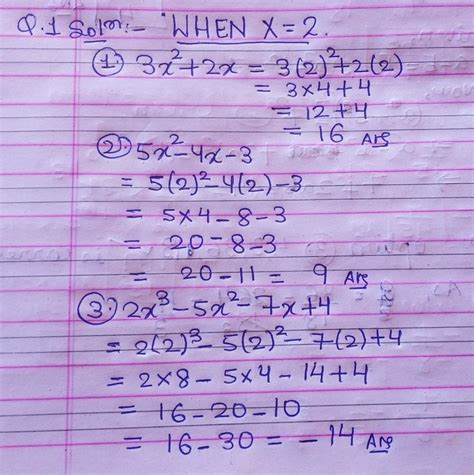 Q.1 Soln:- WHEN X = 2.
1. 3x² + 2x = 3(2)² + 2(2)
= 3×4+4
= 12+4
= 16 Ans
2. 5x² - 4x - 3
= 5(2)² - 4(2) - 3
= 5×4 - 8 - 3
= 20 - 8 - 3
= 20 - 11 = 9 Ans
3. 2x³ - 5x² - 7x + 4
= 2(2)³ - 5(2)² - 7(2) + 4
= 2×8 - 5×4 - 14 + 4
= 16 - 20 - 10
= 16 - 30 = - 14 Ans